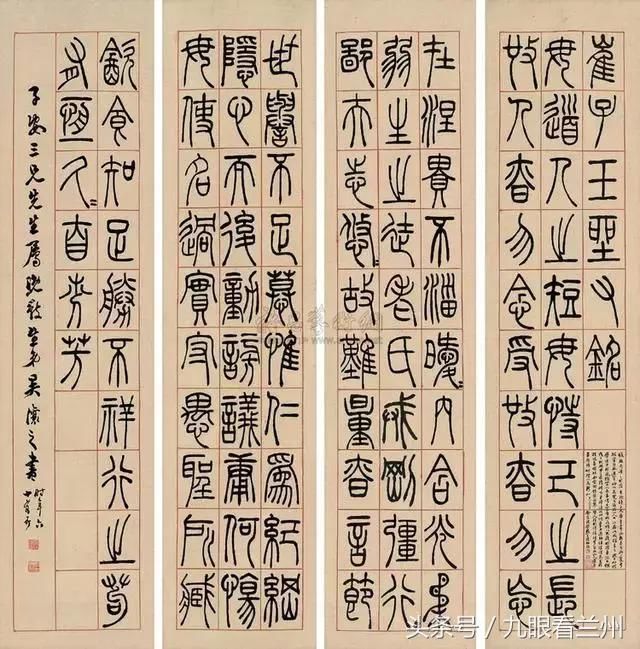 崔子玉聖右銘
毋道人之短毋恃己之長
施人慎勿念受施慎勿忘
在涅貴不淄曖=内含光柔
弱生之徒老氏戒剛彊行
鄙夫志悠=故難量慎言節
世譽不足慕惟仁爲紀綱
隱心而後動謗議庸何傷
毋使名過實守愚聖所臧
飲食知足勝不祥行之苟
有恆久=自芬芳
子安三兄先生屬 弟吳讓之書
時年六十
头条号 / 九眼看兰州